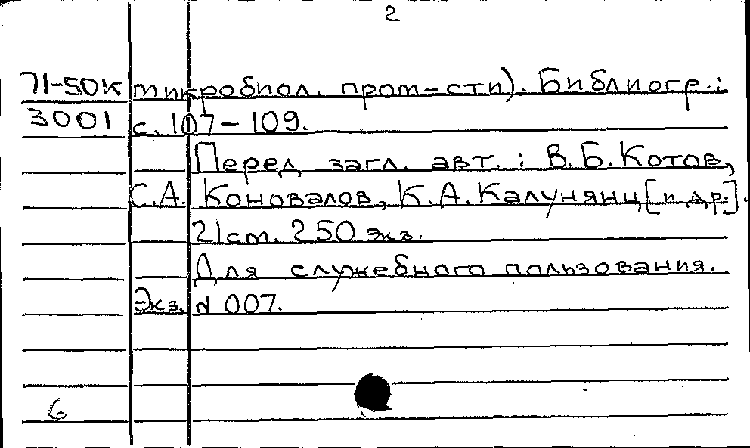 2
71-50К микробиол. пром-сти). Библиогр.:
3001 с. 107-109.
Перед загл. авт.: В.Б. Котов,
С.А. Коновалов, К.А. Калунянц [и др.].
21 см. 250 экз.
Для служебного пользования.
Экз. N 007.
6